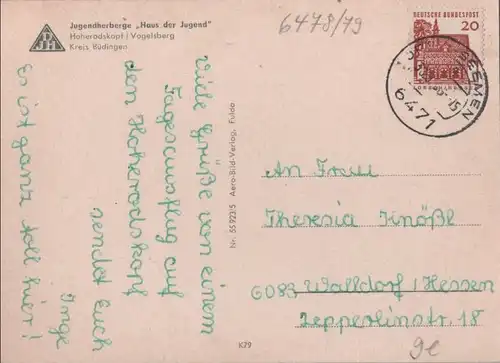 Jugendherberge „Haus der Jugend"
Hoherodskopf / Vogelsberg
Kreis Büdingen
6478/79
DEUTSCHE BUNDESPOST
20
6471
Viele Grüße von einem
Tagesausflug auf
den Hoherodskopf
sendet Euch
Inge
Es ist ganz toll hier!
Nr. 55 9221 S Aero-Bild-Verlag, Fulda
An Frau
Theresia Knößl
6083 Walldorf / Hessen
Zeppelinstr. 18
K79